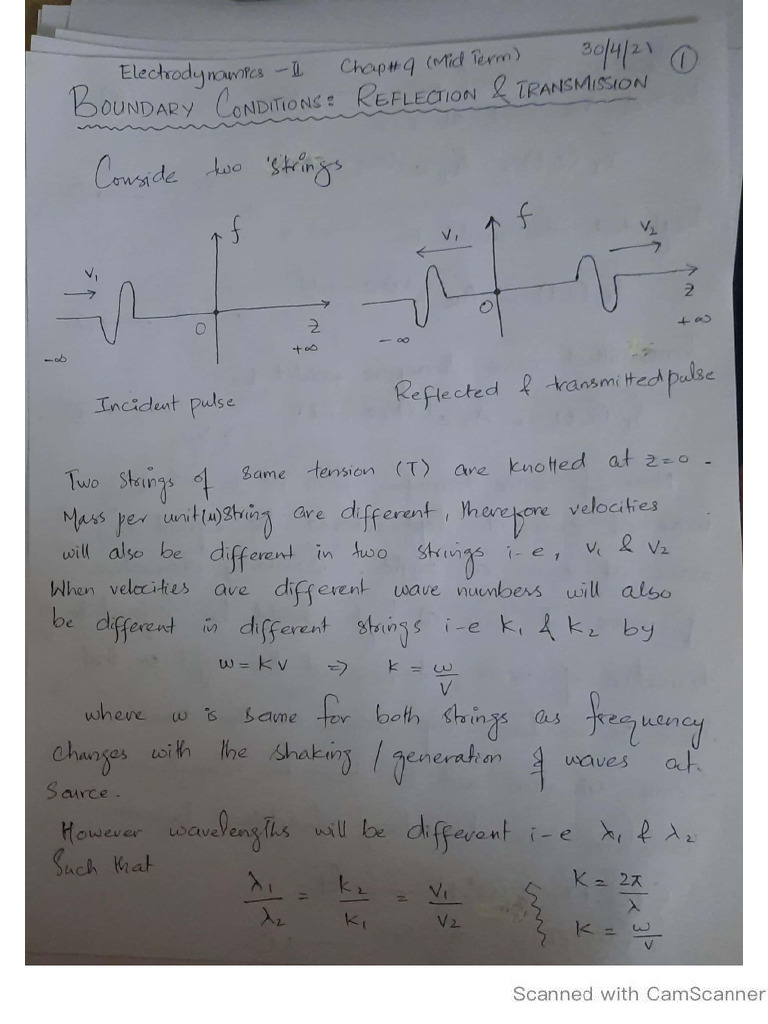 Electrodynamics - II Chap#9 (Mid Term) 30/4/21 ①
BOUNDARY CONDITIONS: REFLECTION & TRANSMISSION
Conside two strings
f
V₁
0
z
-∞
+∞
Incident pulse
f
V₁
V₂
0
z
-∞
+∞
Reflected & transmitted pulse
Two Strings of same tension (T) are knotted at z=0.
Mass per unit (μ) string are different, therefore velocities
will also be different in two strings i-e, V₁ & V₂
When velocities are different wave numbers will also
be different in different strings i-e K₁ & K₂ by
ω = KV ⇒ K = ω/V
where ω is same for both strings as frequency
changes with the shaking / generation of waves at
Source.
However wavelengths will be different i-e λ₁ & λ₂
Such that
λ₁/λ₂ = K₂/K₁ = V₁/V₂ } K = 2π/λ
K = ω/V
Scanned with CamScanner